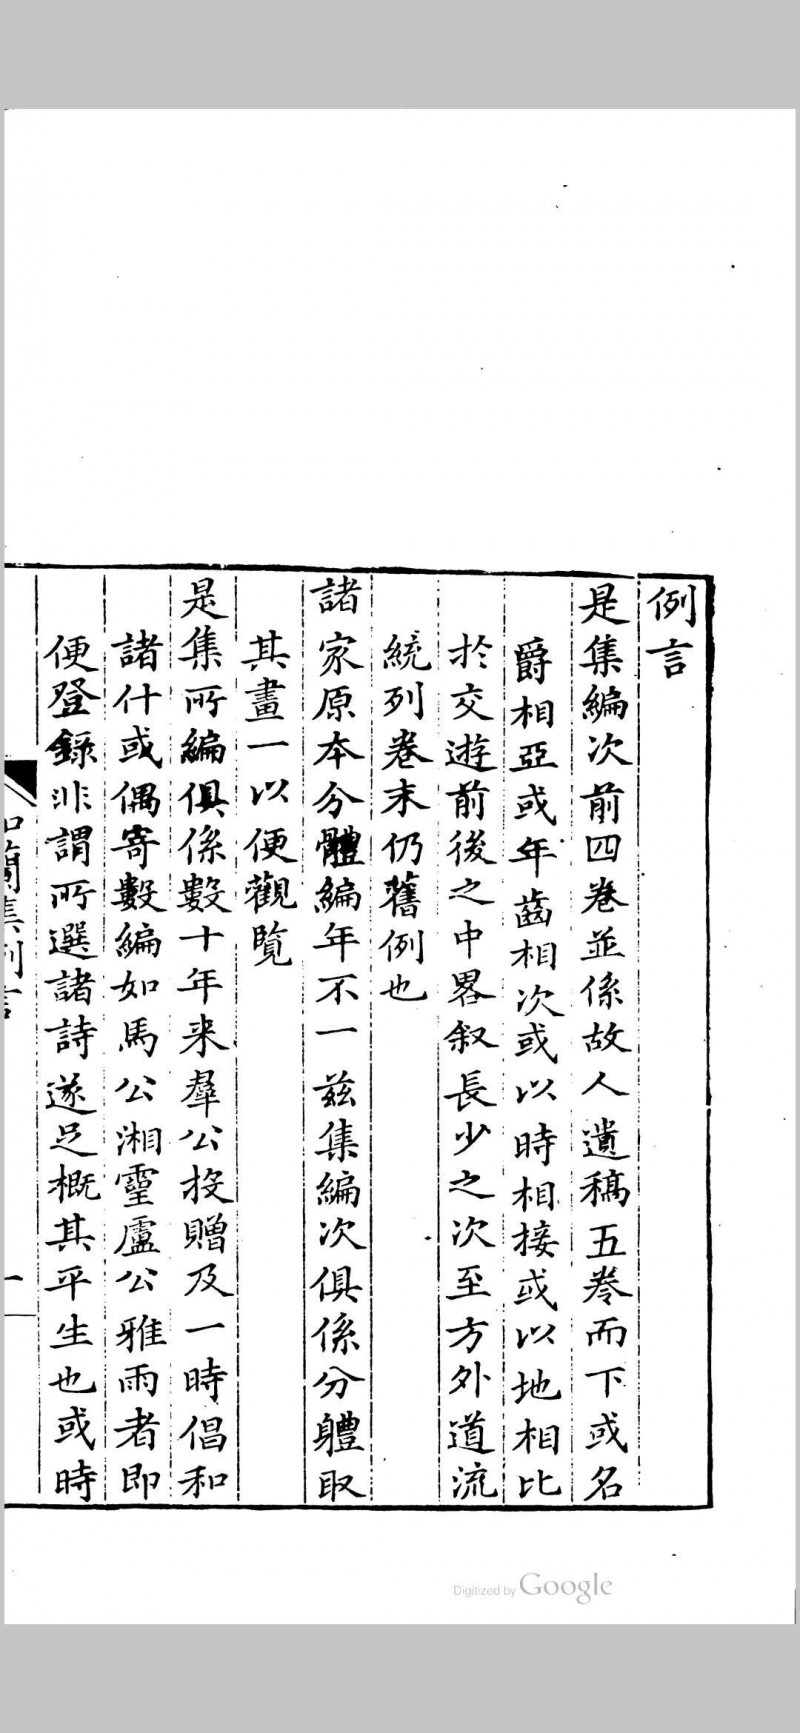 例言
是集編次前四卷並係故人遺稿五卷而下或名
爵相亞或年齒相次或以時相接或以地相比
於交遊前後之中畧叙長少之次至方外道流
統列卷末仍舊例也
諸家原本分體編年不一茲集編次俱係分體取
其畫一以便觀覽
是集所編俱係數十年来羣公投贈及一時倡和
諸什或偶寄數編如馬公湘靈盧公雅雨者即
便登錄非謂所選諸詩遂足概其平生也或時
蘭集例言
一
Digitized by Google